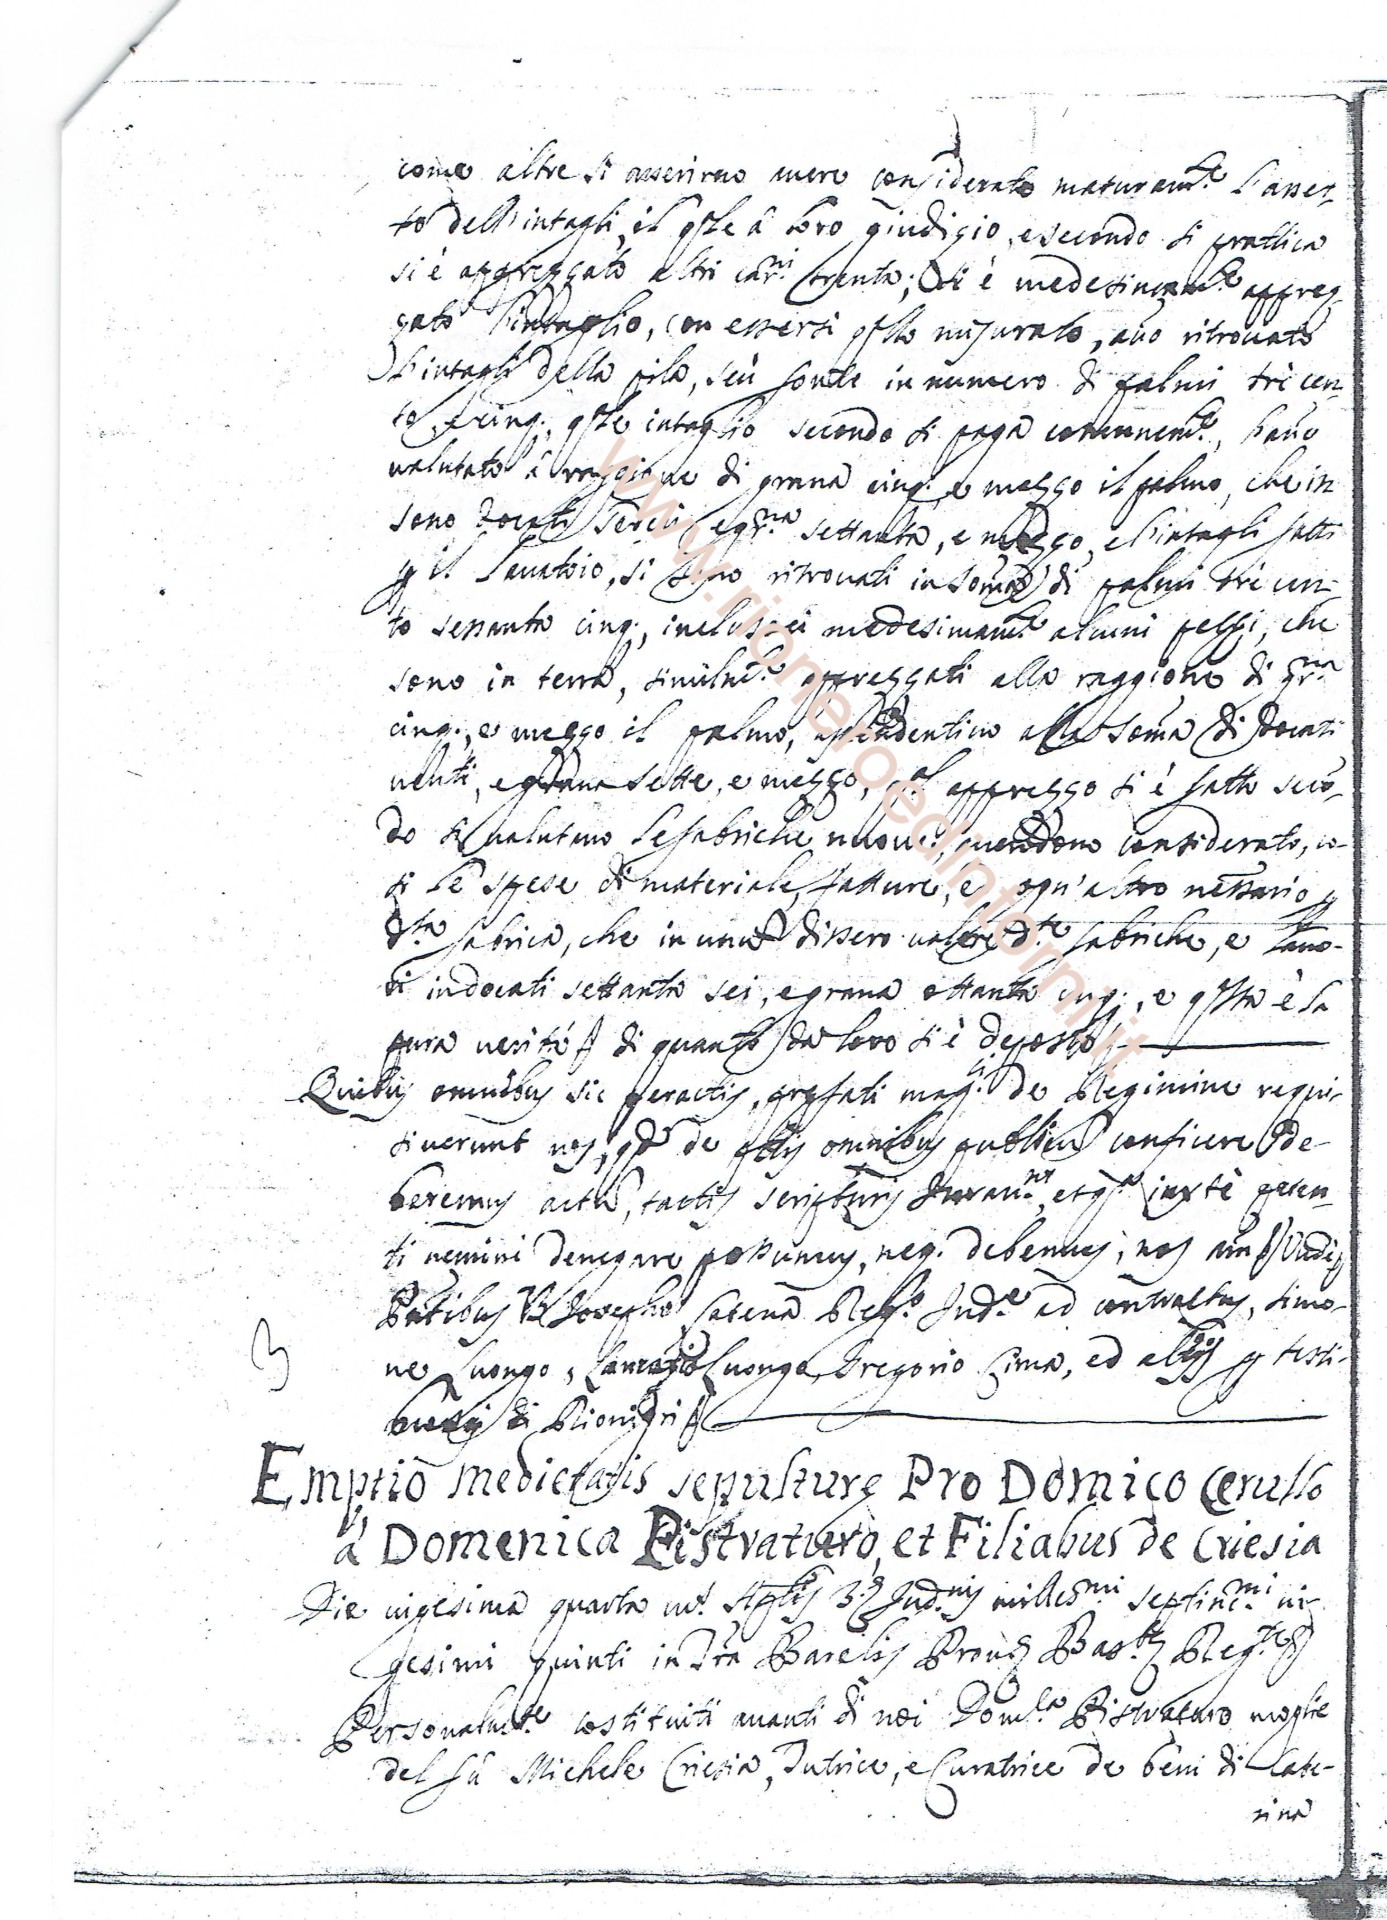 come altre si asserirno avere considerato maturam.te l'asset-
to dell'intagli, il q.le à loro giudizio, e secondo si prattica
si è apprezzato altri car.ni trenta; si è medesimam.te apprez-
zato l'intaglio, con essersi q.sto misurato, àno ritrovato
l'intagli della pila, seù fonte in numero di palmi trè cen-
to, q.le intaglio secondo si paga comunem.te, hano
valutato à raggione di grana cinq. e mezzo il palmo, che in
sono docati e gr.na settanta, e mezzo, e l'intagli fatti
p il lavatoio, si sono ritrovati in somã di palmi trè cen-
to sessanta cinq;, inclusoci medesimam.te alcuni pezzi, che
sono in terra, similm.te apprezzati alla raggione di gr.na
cinq;, e mezzo il palmo, ascendentino alla somã di docati
venti, e grana sette, e mezzo, q.al apprezzo si è fatto secõ-
do si valutano le fabriche nuove, avendono considerato, co-
si le spese di materiale, fatture, e ogn'altro neссario p
d.ta fabrica, che in unũ dissero valere d.te fabriche, e lavo-
ri in docati settanta sei, e grana ottanta cinq;, e q.sta è la
pura verità di quanto da loro si è deposto
Quibus omnibus sic peractis, prefati mag.ci de Regimine requi-
siverunt nos, q.d de p.ttis omnibus publicũ conficere de-
beremus actũ, tactis scripturis Iuraver.nt, et q.a iustè peten-
ti nemini denegare possumus, neq. debemus, nos
Patibus Iosepho Catena Reg.o Iud.e ad contractus, Simo-
ne Luongo, Luongo, Gregorio Cima, ed aliis p testi-
bus di Rionigri
3
Emptiõ medietatis sepulture Pro Domico Cerullo
à Domenica Pistraturo, et Filiabus de Criesia
Die vigesima quarta m. 3.e Ind.nis milles.mi septinc.mi vi-
gesimi quinti in Trã Barelis Prov.e Bas.te Reg.te
Personalm.te costituiti avanti di noi Dom.ca Pistraturo moglie
del fù Michele Criesia, Tutrice, e Curatrice de beni di Cate-
rina
www.rioneroedintorni.it